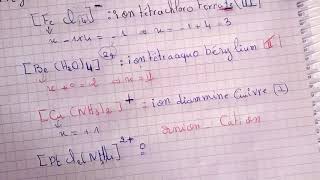 [Fe Cl4]⁻ : ion tétrachloro ferrate (III)
x - 1×4 = -1 ⇒ x = -1 + 4 = 3
[Be (H2O)4]²⁺ : ion tétraaquo béryllium (II)
x + 0 = 2 ⇒ x = II
[Cu (NH3)2]⁺ : ion diammine Cuivre (I)
x = +1
anion Cation